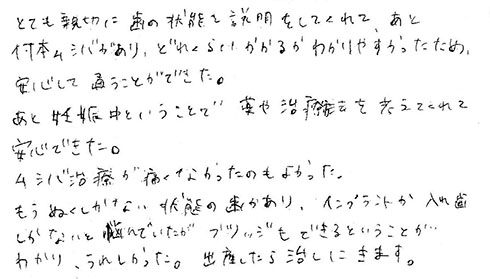 とても親切に歯の状態を説明をしてくれて、あと
何本ムシバがあり、どれくらいかかるかわかりやすかったため、
安心して通うことができた。
あと妊娠中ということで薬や治療法を考えてくれて
安心できた。
ムシバ治療が痛くなかったのもよかった。
もうぬくしかない状態の歯があり、インプラントか入れ歯
しかないと悩んでいたがブリッジもできるということが
わかり、うれしかった。出産したら治しにきます。